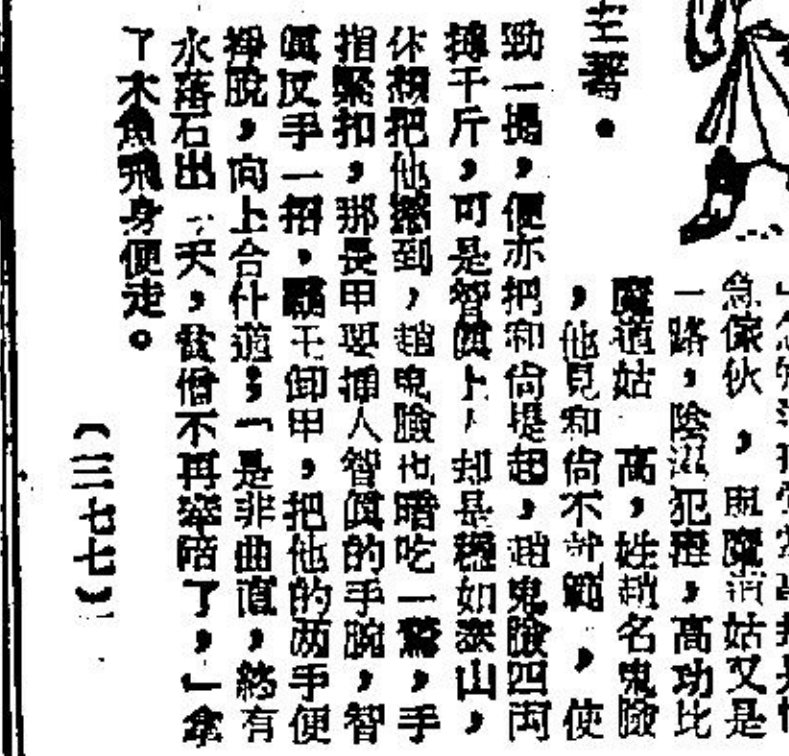 急傢伙，與魔道姑又是
一路，陰沉犯，高功比
魔道姑 高，姓趙名鬼臉
，他見和尚不就範，使
勁一揚，便亦把和尚提起，趙鬼臉四両
搏千斤，可是智眞上人却是穩如泰山，
休想把他搬到，趙鬼臉也暗吃一驚，手
指緊扣，那長甲要插入智眞的手腕，智
眞反手一招，霸王卸甲，把他的两手便
掙脫，向上合什道；「是非曲直，終有
水落石出一天，貧僧不再奉陪了，」拿
了木魚飛身便走。
（三七七）
王著。